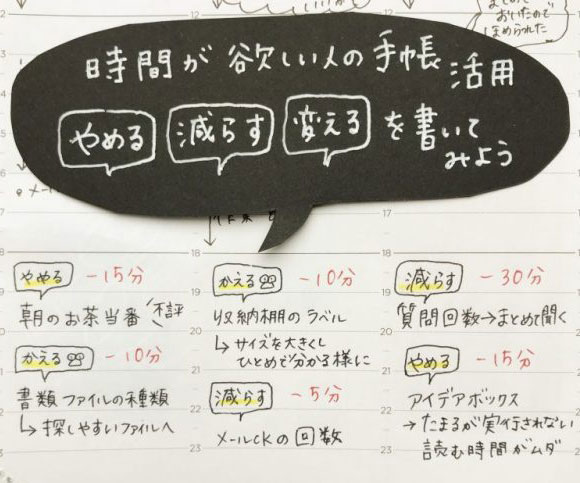 まとめて
おいたので
ほめられた
12
12
13
14
15
16
17
時間が欲しい人の手帳活用
やめる 減らす 変える を書いて
みよう
メール
18
18
19
20
21
22
23
やめる -15分
朝のお茶当番 不評
かえる -10分
書類ファイルの種類
↳探しやすいファイルへ
18
19
20
21
22
23
かえる -10分
収納棚のラベル
↳サイズを大きくし
ひとめで分かる様に
減らす -5分
メールCKの回数
18
19
20
21
22
23
減らす -30分
質問回数→まとめて聞く
やめる -15分
アイデアボックス
→たまるが実行されない
読む時間がムダ